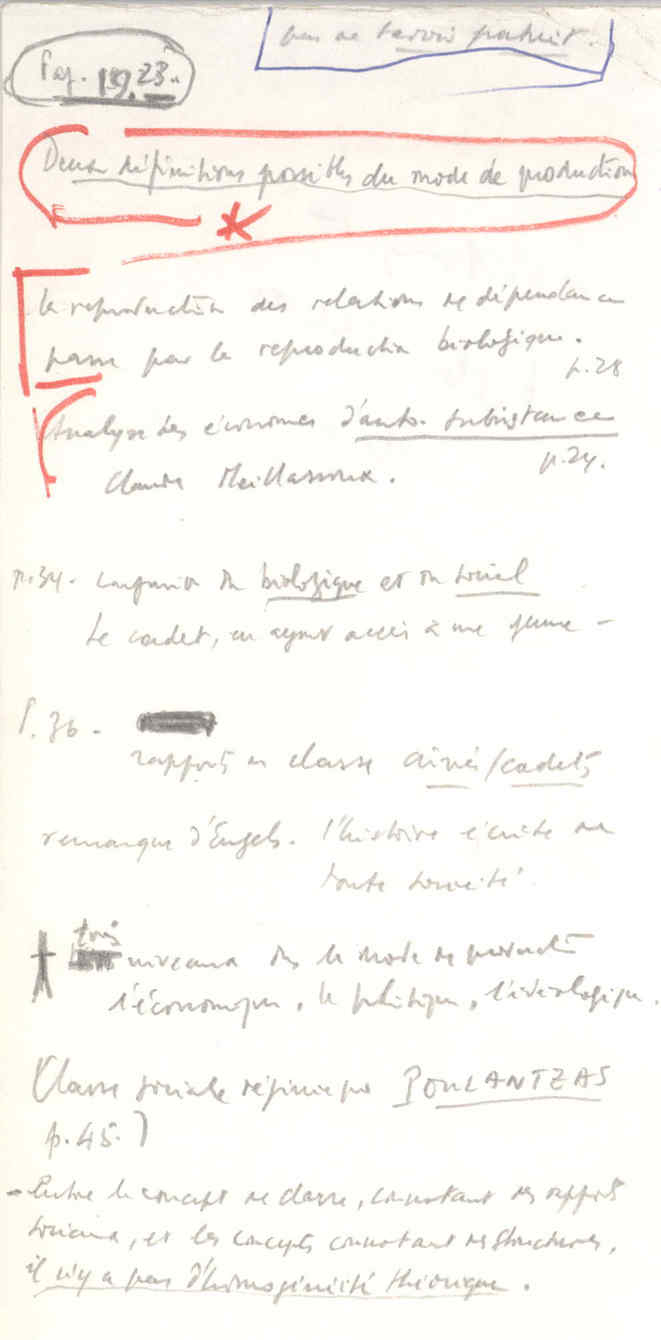 pas de savoir gratuit.
Pag. 19. 23.
Deux définitions possibles du mode de production
la reproduction des relations de dépendance
passe par la reproduction biologique.
p.28
Analyse des économies d'auto-subsistance
p.24.
Claude Meillassoux.
p.34. du biologique et du social
Le cadet, en ayant accès à une femme -
P.36 -
rapports de classe aînés/cadets
remarque d'Engels. l'histoire écrite de
toute société.
trois
niveaux ds le mode de production
l'économique, le politique, l'idéologique.
Classe sociale définie par POULANTZAS
p.45.)
- Entre le concept de classe, connotant des rapports
sociaux, et les concepts connotant des structures,
il n'y a pas d'homogénéité théorique.